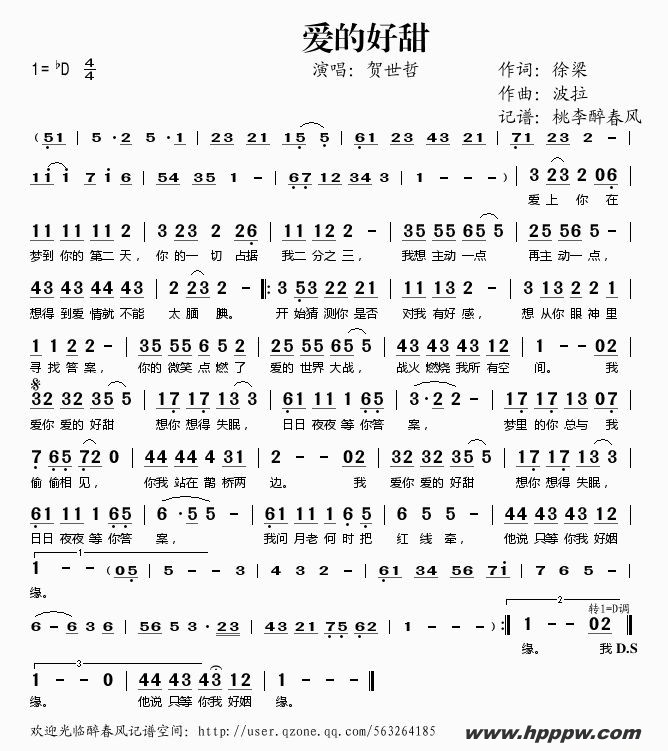 爱的好甜
1= ♭D 4/4 演唱：贺世哲 作词：徐梁
作曲：波拉
记谱：桃李醉春风
( 51 | 5 · 2 5 · 1 | 23 21 15 5 | 61 23 43 21 | 71 23 - - |
11 i 7 i 6 | 54 35 1 - | 67 12 34 3 | 2 - - - ) | 3 23 2 06 |
爱上你在
11 11 11 2 | 3 23 2 26 | 11 11 12 - | 35 55 65 5 | 25 56 5 - |
梦到你的第二天， 你的一切占据 我二分之三， 我想主动一点 再主动一点，
43 43 43 43 | 2 23 2 - ||: 3 53 22 21 | 11 13 2 - | 33 21 21 16 |
想得到爱情就不能 太腼腆。 开始猜测你是否 对我有好感， 想从你眼神里
1 1 2 2 - | 35 55 65 6 | 25 55 65 5 | 43 43 43 12 | 1 - - 02 |
寻找答案， 你的微笑点燃了 爱的世界大战， 战火燃烧我所有空 间。 我
32 32 35 5 | 17 17 13 3 | 61 11 11 65 | 3 · 2 2 - | 17 17 13 07 |
爱你爱的好甜 想你想得失眠， 日日夜夜等你答 案， 梦里的你总与我
7 65 72 0 | 44 44 4 31 | 2 - - 02 | 32 32 35 5 | 17 17 13 3 |
偷偷相见， 你我站在鹊桥两 边。 我 爱你爱的好甜 想你想得失眠，
61 11 1 65 | 6 · 5 5 - | 61 11 65 65 | 6 5 5 - | 44 43 43 12 |
日日夜夜等你答 案， 我问月老何时把 红线牵， 他说只等你我好姻
1
1 - - ( 05 | 5 - 2 3 | 5 - - - | 4 3 2 - | 61 34 56 7i | 7 6 5 - |
缘。
2
转1=D调
6 - 6 3 6 | 5 5 3 · 23 | 43 21 75 62 | 1 - - - ) :|| 1 - - 02 ||
缘。 我 D.S
3
1 - - 0 | 44 43 43 12 | 1 - - - ||
缘。 他说只等你我好姻 缘。
欢迎光临醉春风记谱空间：http://user.qzone.qq.com/563264185
www.hpppw.com